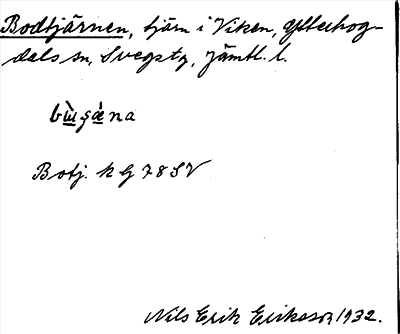 Bodtjärnen, tjärn i Viken, Ytterhog-
dals sn, Svegs tg, Jämtl. l.
Botj. k G 78 SV
Nils Erik Eriksson 1932.